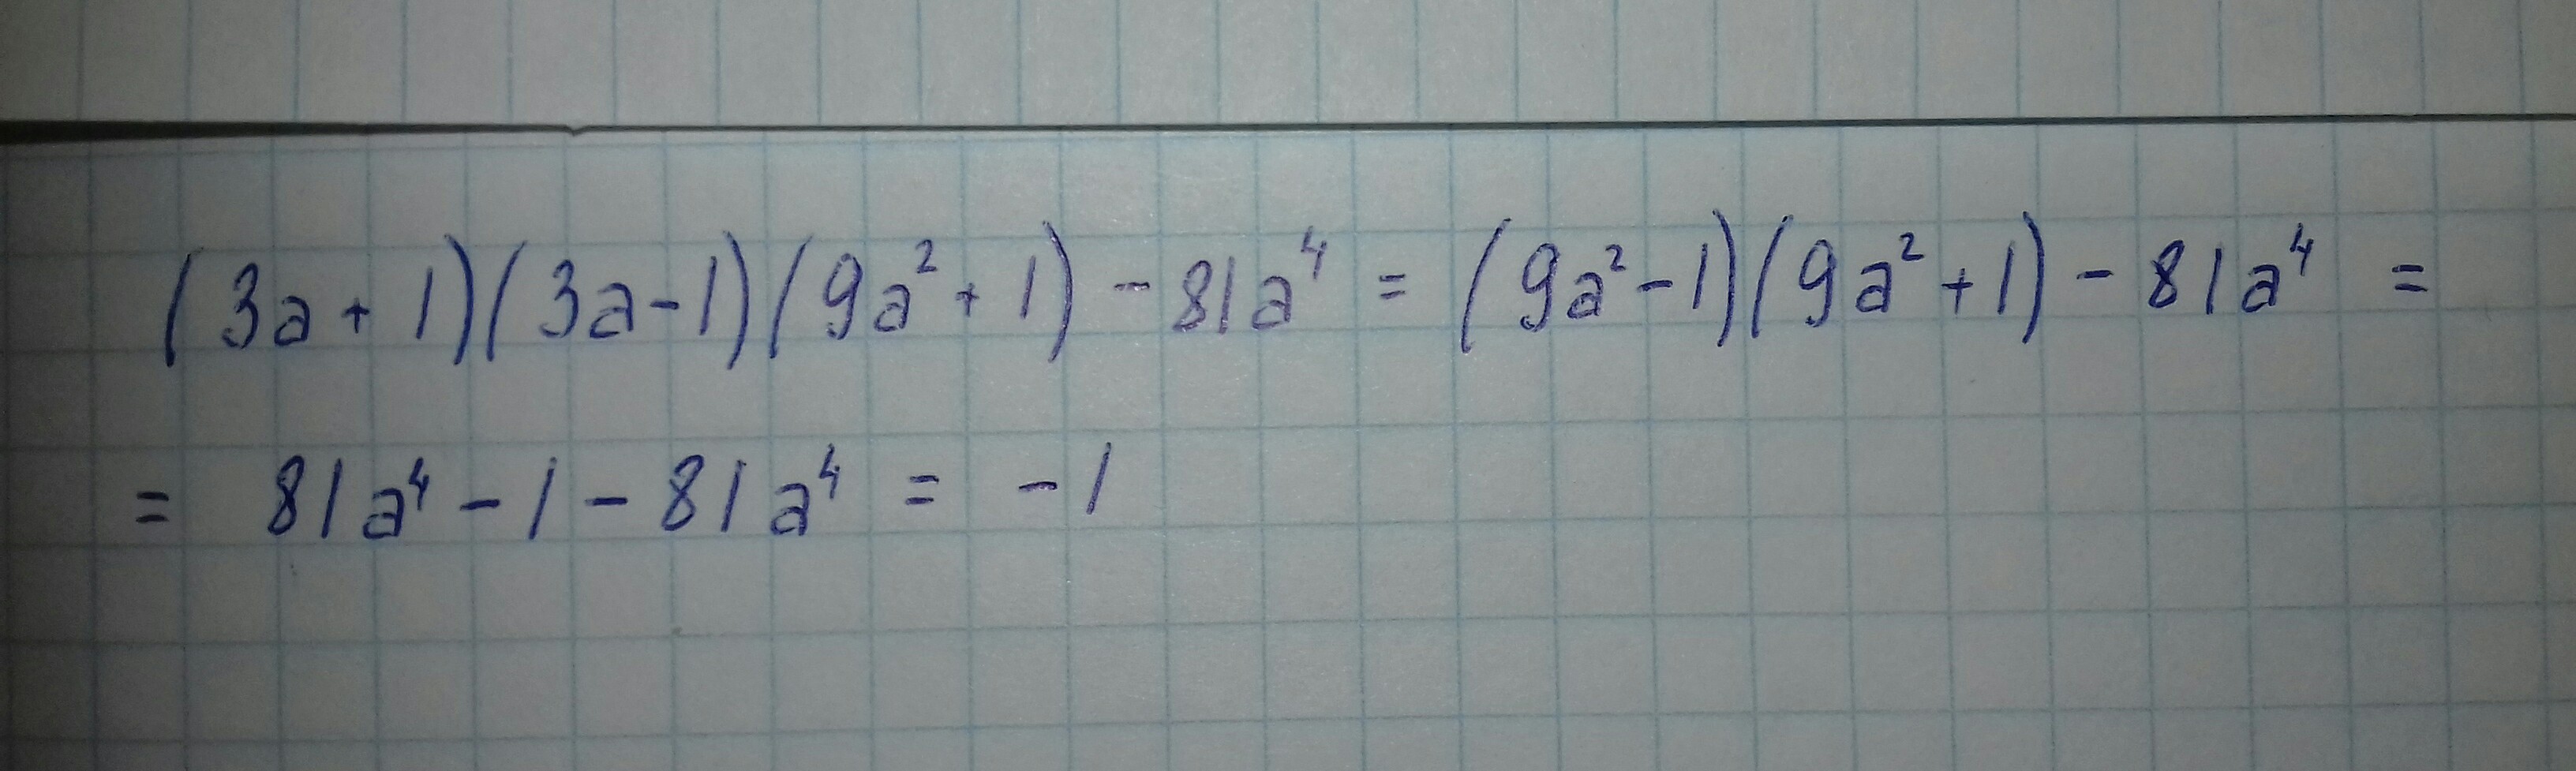 (3a+1)(3a-1)(9a²+1)-81a⁴=(9a²-1)(9a²+1)-81a⁴=
= 81a⁴-1-81a⁴ = -1